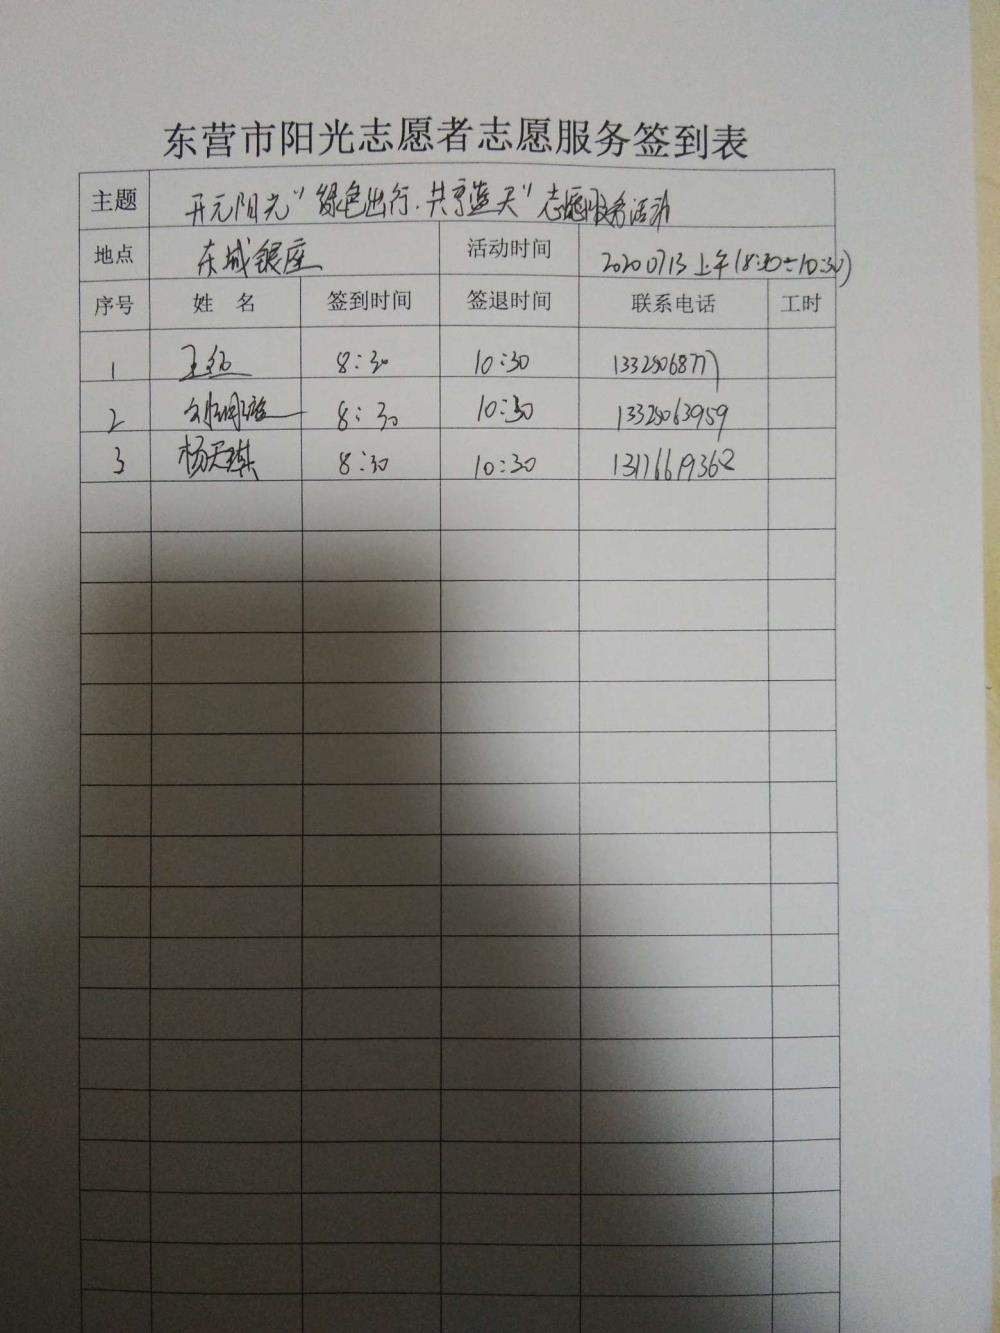 东营市阳光志愿者志愿服务签到表
主题 开元阳光"绿色出行·共享蓝天"志愿服务活动
地点 东城银座 活动时间 20200713上午(8:30-10:30)
序号 姓名 签到时间 签退时间 联系电话 工时
1 王 8:30 10:30 13325068777
2 8:30 10:30 13325063959
3 杨天琪 8:30 10:30 13176619362